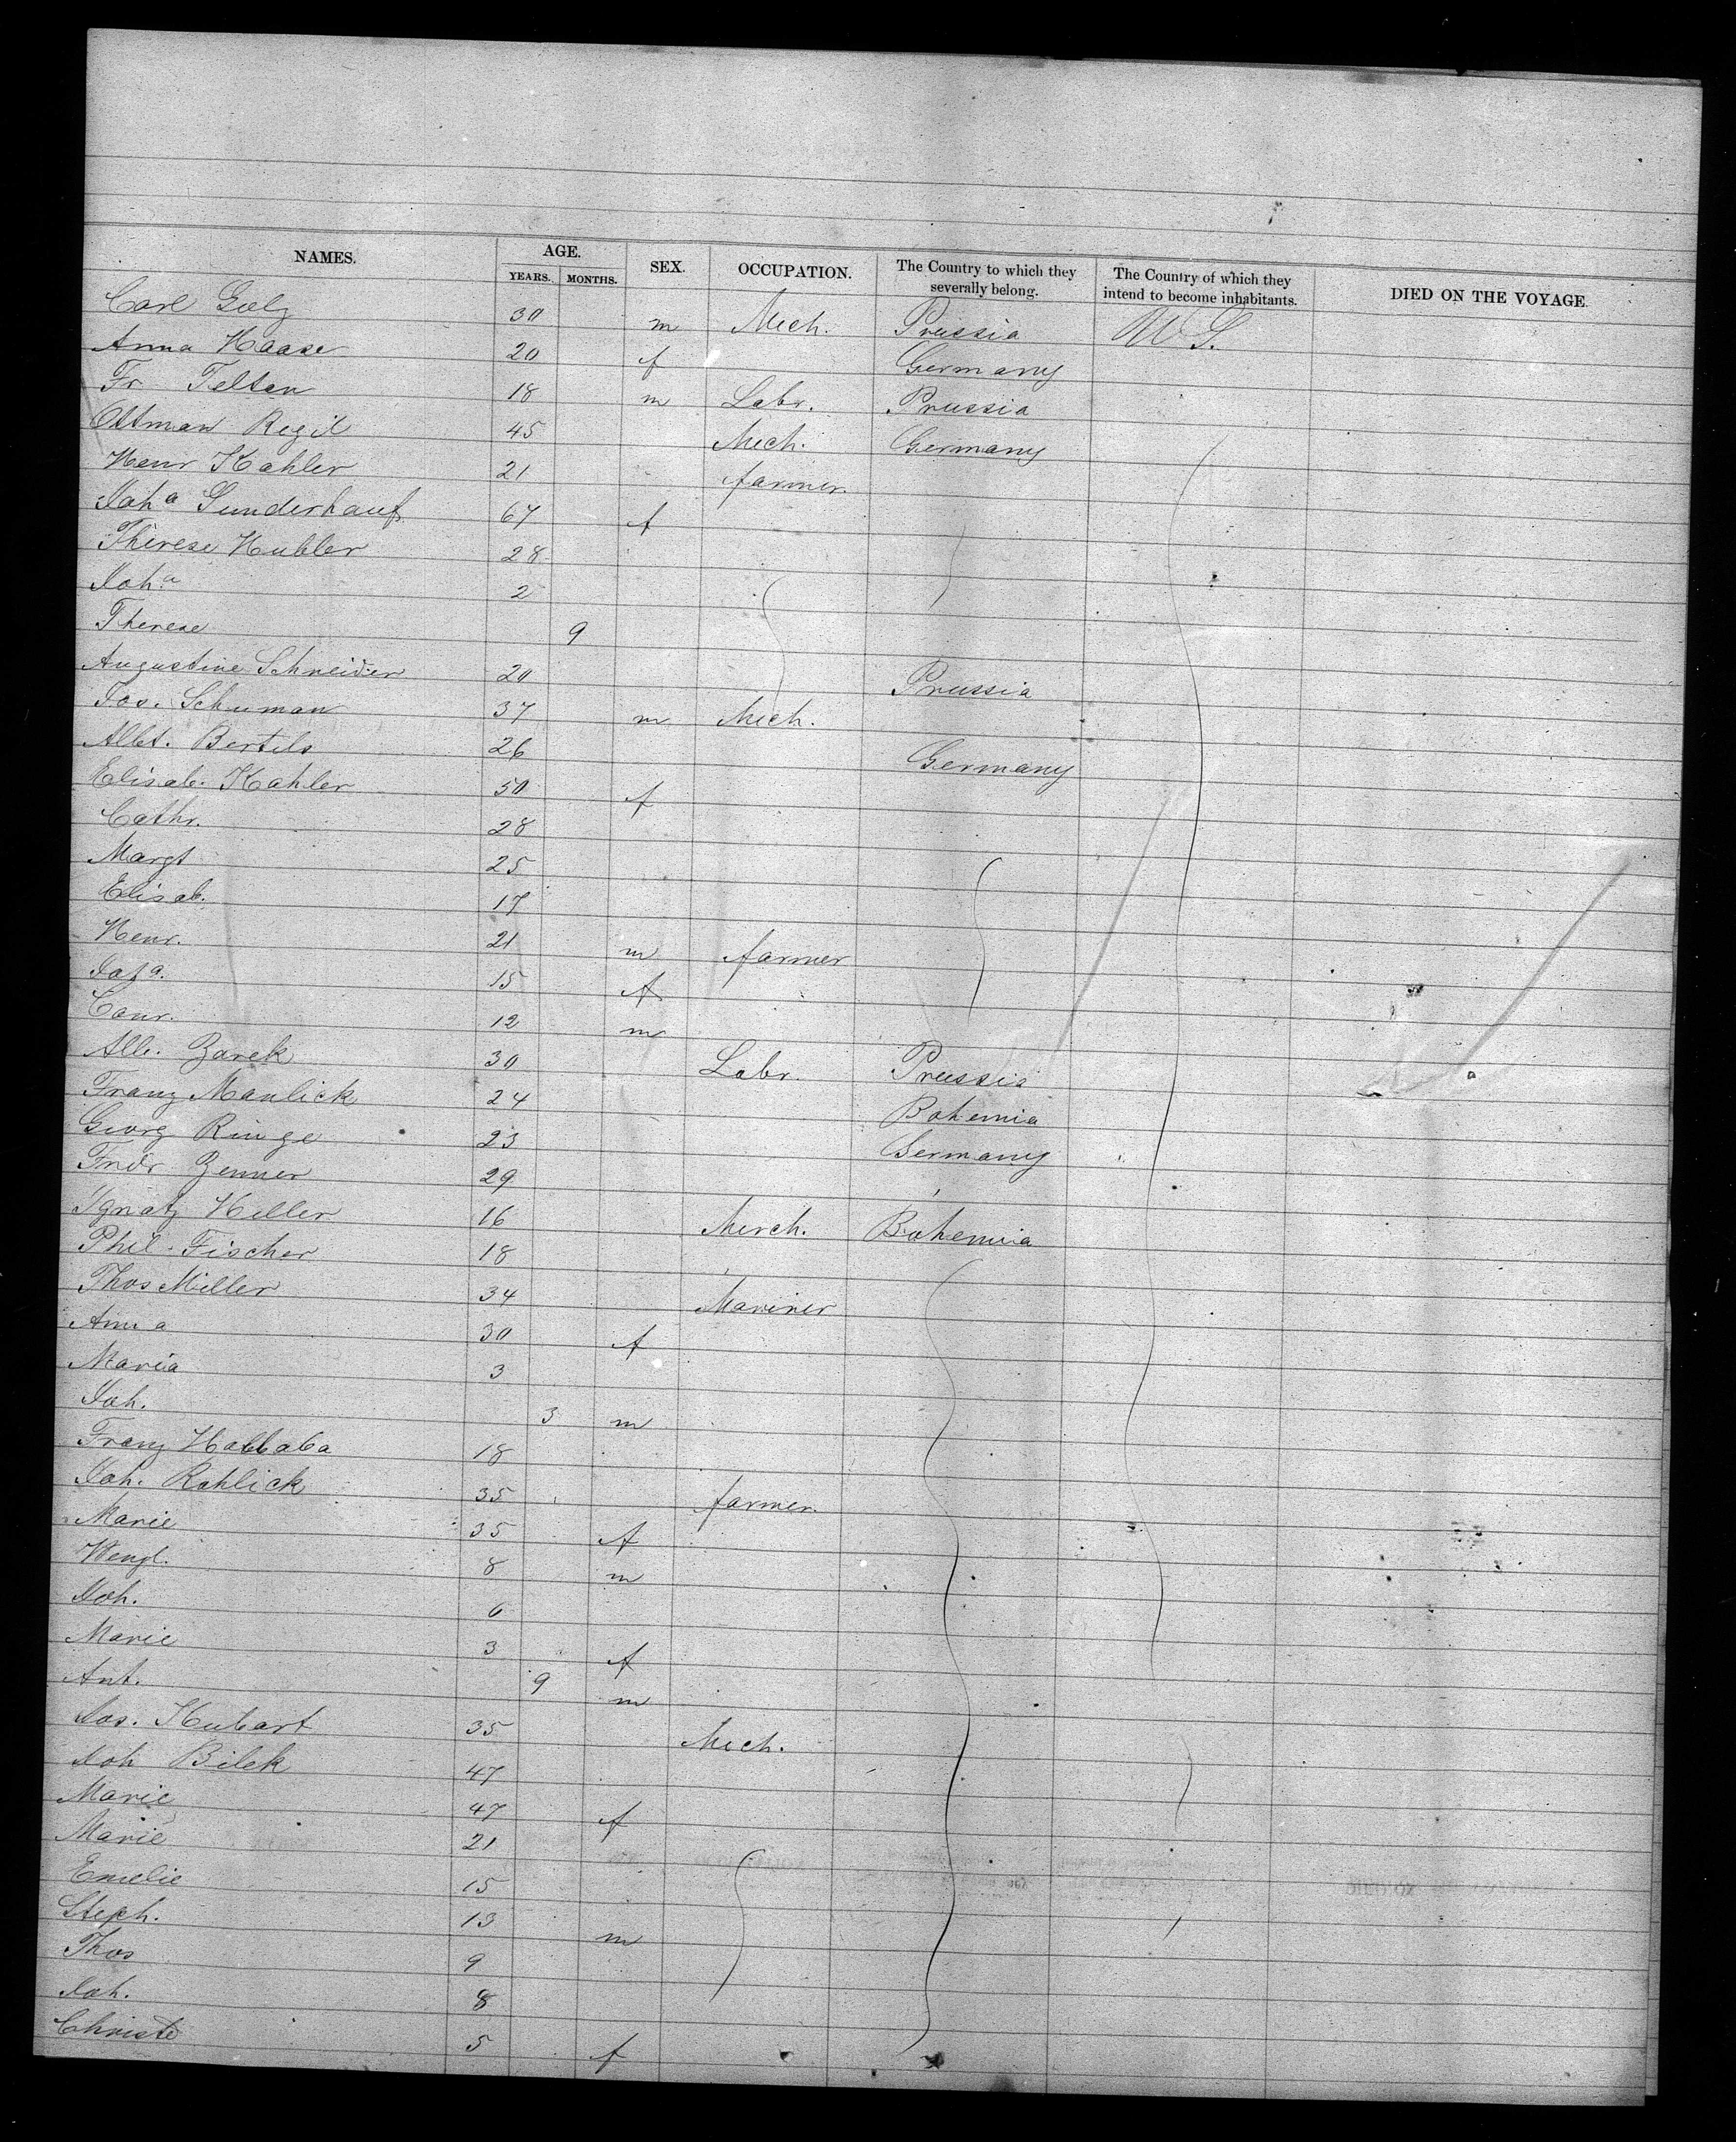 NAMES. AGE. SEX. OCCUPATION. The Country to which they severally belong. The Country of which they intend to become inhabitants. DIED ON THE VOYAGE.
YEARS. MONTHS.
Carl Golz 30 m Mech. Prussia U S.
Anna Haase 20 f Germany
Fr Telten 18 m Labr. Prussia
Ottman Regil 45 Mech. Germany
Henr Kahler 21 farmer.
Joha Sunderhauf 67 f
Therese Hubler 28
Joha 2
Therese 9
Augustine Schneider 20 Prussia
Jos. Schuman 37 m Mech.
Albt. Bertels 26 Germany
Elisab. Kahler 50 f
Cathr. 28
Margt 25
Elisab. 17
Henr. 21 m farmer
Joha. 15 f
Conr. 12 m
Alb. Zarek 30 Labr. Prussia
Franz Manlick 24 Bohemia
Georg Ringe 23 Germany
Fridr Zenner 29
Ignatz Heller 16 Merch. Bohemia
Phil. Fischer 18
Thos Miller 34 Mariner
Anna 30 f
Maria 3
Joh. 3 m
Franz Hablaba 18
Joh. Rohlick 35 farmer.
Marie 35 f
Wenzl. 8 m
Joh. 6
Marie 3 f
Ant. 9 m
Jos. Kubart 35 Mech.
Joh Bilek 47
Marie 47 f
Marie 21
Emelie 15
Steph. 13 m
Thos 9
Joh. 8
Christe 5 f